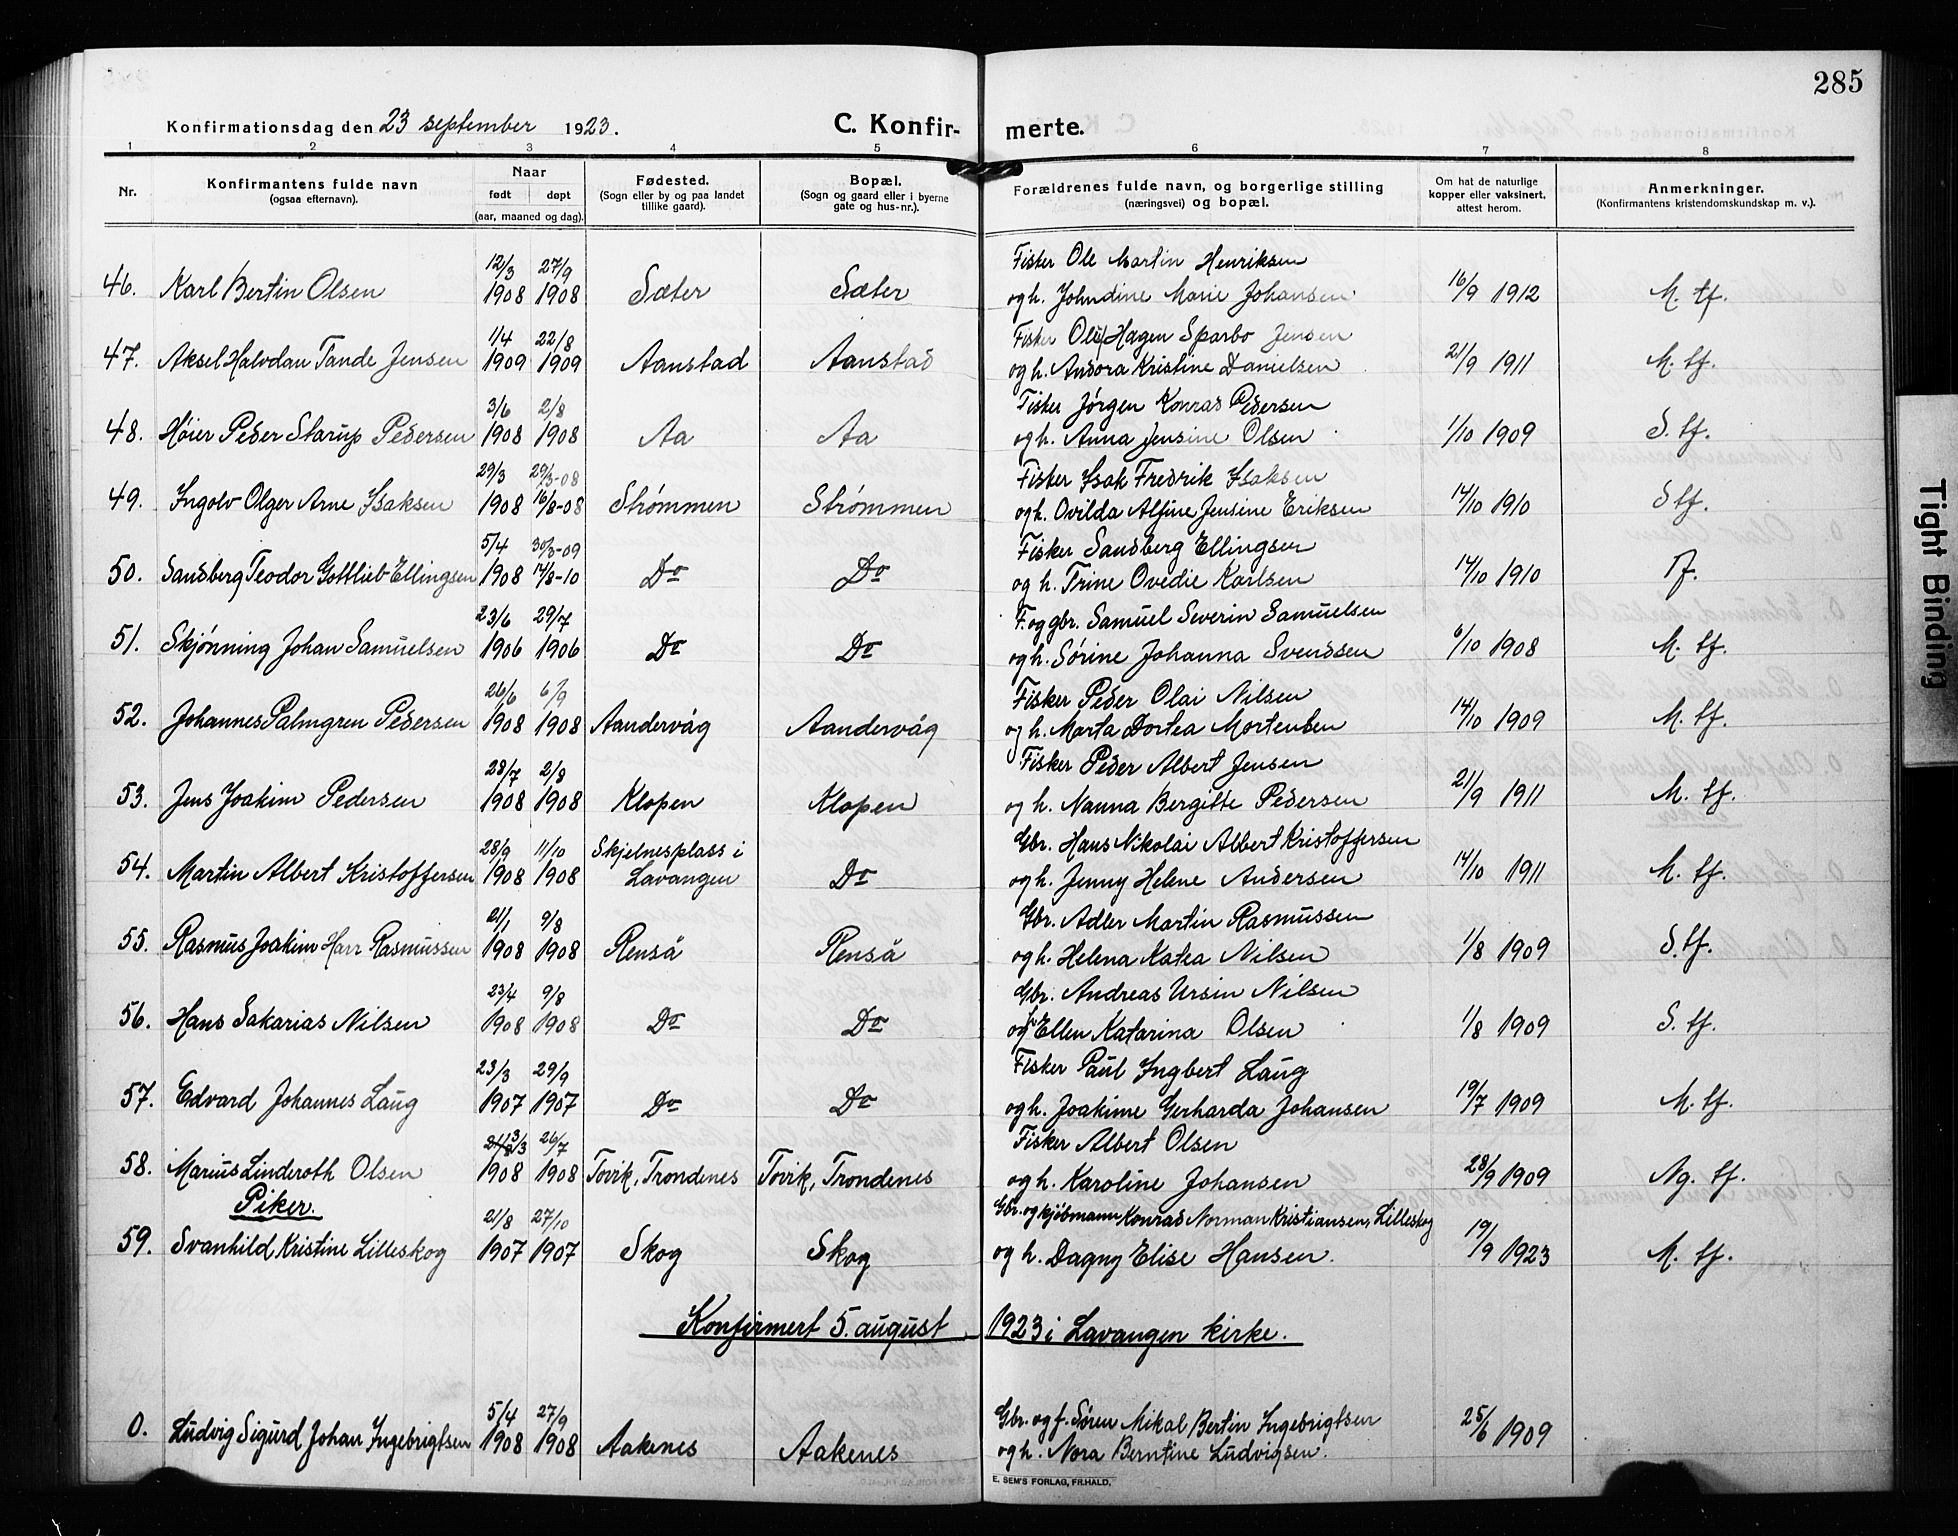 285
Konfirmationsdag den 23 september 1923.
C. Konfir- merte.
1 2 3 4 5 6 7 8
Nr.
Konfirmantens fulde navn
(ogsaa efternavn).
Naar
født døpt
(aar, maaned og dag).
Fødested.
(Sogn eller by og paa landet
tillike gaard).
Bopæl.
(Sogn og gaard eller i byerne
gate og hus-nr.).
Forældrenes fulde navn, og borgerlige stilling
(næringsvei) og bopæl.
Om hat de naturlige
kopper eller vaksinert,
attest herom.
Anmerkninger.
(Konfirmantens kristendomskundskap m. v.).
12/3 27/9 Fisker Ole Martin Henriksen
46. Karl Bertin Olsen 1908 1908 Sæter Sæter og h. Johndine Marie Johansen 16/9 1912 M. tf.
1/4 22/8 Fisker Oluf Hagen Sparbo Jensen
47. Aksel Halvdan Tande Jensen 1909 1909 Aanstad Aanstad og h. Andora Kristine Danielsen 21/9 1911 M. tf.
3/6 2/8 Fisker Jørgen Konrad Pedersen
48. Høier Peder Starup Pedersen 1908 1908 Aa Aa og h. Anna Jensine Olsen 1/10 1909 S. tf.
29/3 29/3-08 Fisker Isak Fredrik Isaksen
49. Ingolv Olger Arne Isaksen 1908 16/8-08 Strømmen Strømmen og h. Ovilda Alfine Jensine Eriksen 14/10 1910 S tf.
5/4 30/3-09 Fisker Sandberg Ellingsen
50. Sandberg Teodor Gottlieb Ellingsen 1908 14/8-10 Do Do og h. Trine Ovedie Karlsen 14/10 1910 Tf.
23/6 29/7 F. og gbr. Samuel Severin Samuelsen
51. Skjønning Johan Samuelsen 1906 1906 Do Do og h. Sørine Johanna Svendsen 6/10 1908 M. tf.
26/6 6/9 Fisker Peder Olai Nilsen
52. Johannes Palmgren Pedersen 1908 1908 Aandervåg Aandervåg og h. Marta Dortea Mortensen 14/10 1909 M. tf.
28/7 2/8 Fisker Peder Albert Jensen
53. Jens Joakim Pedersen 1908 1908 Klopen Klopen og h. Nanna Bergitte Pedersen 21/9 1911 M. tf.
28/9 11/10 Skjelnesplass i Gbr. Hans Nikolai Albert Kristoffersen
54. Martin Albert Kristoffersen 1908 1908 Lavangen Do og h. Jenny Helene Andersen 14/10 1911 M. tf.
21/1 9/8 Gbr. Adler Martin Rasmussen
55. Rasmus Joakim Harr Rasmussen 1908 1908 Renså Renså og h. Helena Katea Nilsen 1/8 1909 S. tf.
23/4 9/8 Gbr. Andreas Ursin Nilsen
56. Hans Sakarias Nilsen 1908 1908 Do Do og h. Ellen Katarina Olsen 1/8 1909 S. tf.
23/3 29/9 Fisker Paul Ingbert Laug
57. Edvard Johannes Laug 1907 1907 Do Do og h. Joakime Gerharda Johansen 19/7 1909 M. tf.
3/3 26/7 Fisker Albert Olsen
58. Marius Linderoth Olsen 1908 1908 Tovik, Trondenes Tovik, Trondenes og h. Karoline Johansen 28/9 1909 Ng. tf.
Piker.
21/8 27/10 Gbr. og kjøbmann Konrad Norman Kristiansen, Lilleskog
59. Svanhild Kristine Lilleskog 1907 1907 Skog Skog og h. Dagny Elise Hansen. 19/9 1923 M. tf.
Konfirmert 5. august 1923 i Lavangen kirke.
5/4 27/9 Gbr. og f. Søren Mikal Bertin Ingebrigtsen
0. Ludvig Sigurd Johan Ingebrigtsen 1908 1908 Aakenes Aakenes og h. Nora Berntine Ludvigsen. 25/6 1909
E. SEM'S FORLAG, FR.HALD.
Tight Binding